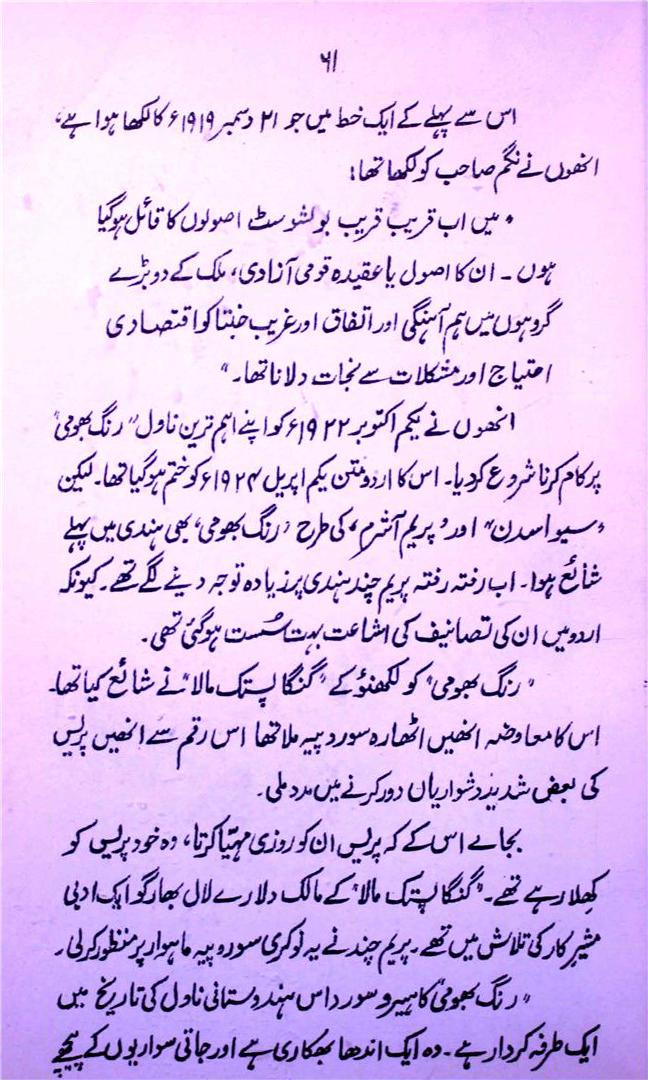 ۶۱
اس سے پہلے کے ایک خط میں جو ۲۱ دسمبر ۱۹۱۹ء کا لکھا ہوا ہے،
انھوں نے نگم صاحب کو لکھا تھا:
"میں اب قریب قریب بولشوسٹ اصولوں کا قائل ہوگیا
ہوں ۔ ان کا اصول یا عقیدہ قومی آزادی، ملک کے دو بڑے
گروہوں میں ہم آہنگی اور اتفاق اور غریب جنتا کو اقتصادی
احتیاج اور مشکلات سے نجات دلانا تھا۔"
انھوں نے یکم اکتوبر ۱۹۲۲ء کو اپنے اہم ترین ناول "رنگ بھومی"
پر کام کرنا شروع کردیا۔ اس کا اردو متن یکم اپریل ۱۹۲۴ء کو ختم ہوگیا تھا۔ لیکن
"سیوا سدن" اور "پریم آشرم" کی طرح "رنگ بھومی" بھی ہندی میں پہلے
شائع ہوا۔ اب رفتہ رفتہ پریم چند ہندی پر زیادہ توجہ دینے لگے تھے۔ کیونکہ
اردو میں ان کی تصانیف کی اشاعت بہت سُست ہوگئی تھی۔
"رنگ بھومی" کو لکھنؤ کے "گنگا پستک مالا" نے شائع کیا تھا۔
اس کا معاوضہ انھیں اٹھارہ سو روپیہ ملا تھا اس رقم سے انھیں پریس
کی بعض شدید دشواریاں دور کرنے میں مدد ملی۔
بجائے اس کے کہ پریس ان کو روزی مہیّا کرتا، وہ خود پریس کو
کھِلا رہے تھے۔ "گنگا پستک مالا" کے مالک دلارے لال بھارگو ایک ادبی
مشیر کار کی تلاش میں تھے۔ پریم چند نے یہ نوکری سو روپیہ ماہوار پر منظور کرلی۔
"رنگ بھومی" کا ہیرو سورداس ہندوستانی ناول کی تاریخ میں
ایک طرفہ کردار ہے۔ وہ ایک اندھا بھکاری ہے اور جاتی سواریوں کے پیچھے